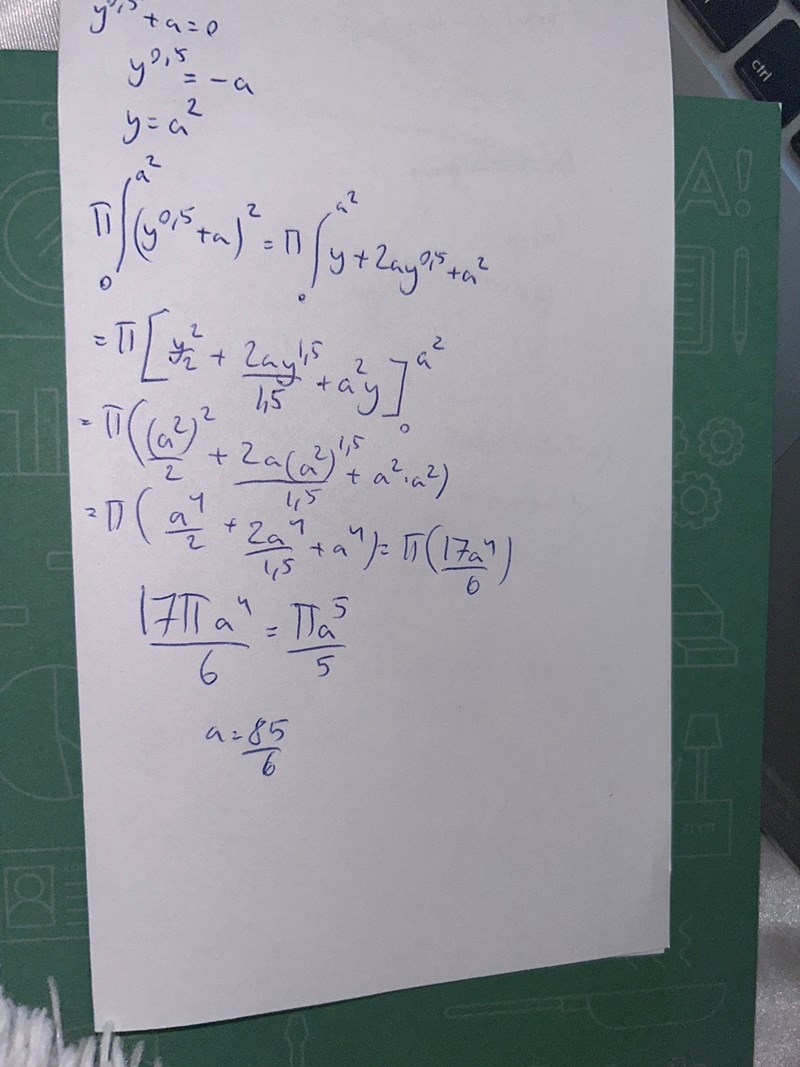 y^0,5 + a = 0
y^0,5 = -a
y = a^2
π∫_0^a^2 (y^0,5 + a)^2 = π∫_0^a^2 y + 2ay^0,5 + a^2
= π[y^2/2 + 2ay^1,5/1,5 + a^2y]_0^a^2
= π((a^2)^2/2 + 2a(a^2)^1,5/1,5 + a^2·a^2)
= π(a^4/2 + 2a^4/1,5 + a^4) = π(17a^4/6)
17πa^4/6 = πa^5/5
a = 85/6
ctrl
A!